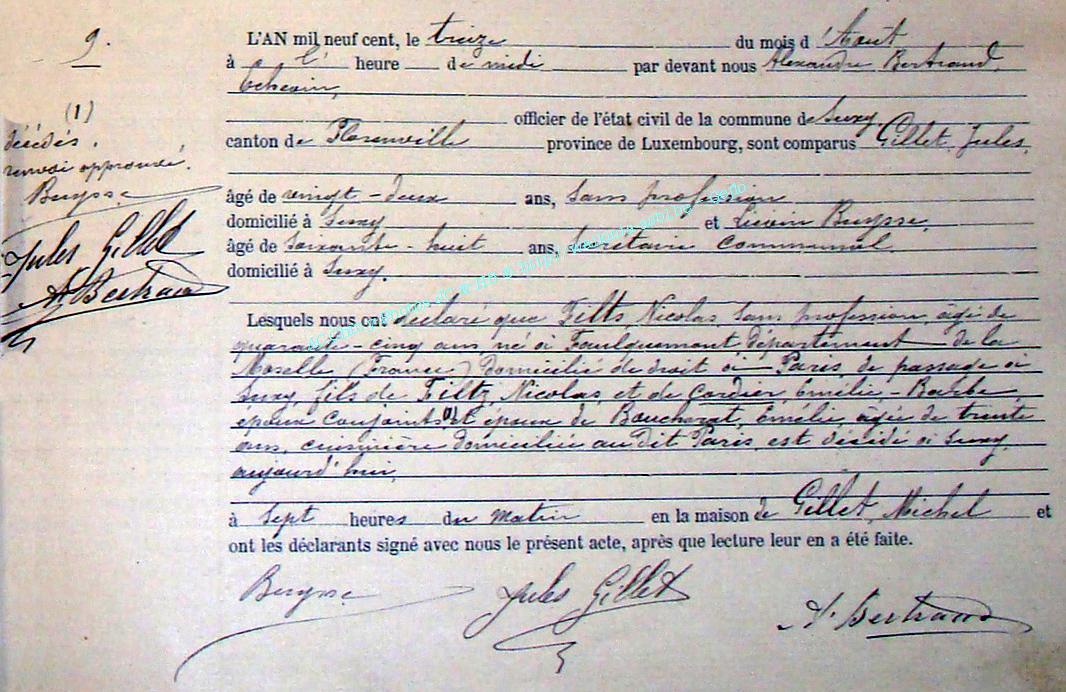 9.
(1)
décédés.
renvoi approuvé.
Buysse
Jules Gillet
A. Bertrand
L'AN mil neuf cent, le treize du mois d'Aout
à l' heure de midi par devant nous Alexandre Bertrand,
Echevin,
officier de l'état civil de la commune de Suxy
canton de Florenville province de Luxembourg, sont comparus Gillet, Jules,
âgé de vingt-deux ans, sans profession
domicilié à Suxy et Livin Buysse,
âgé de soixante-huit ans, secrétaire communal
domicilié à Suxy.
Lesquels nous ont déclaré que Filtz, Nicolas, sans profession, âgé de
quarante-cinq ans né à Faulquemont département de la
Moselle (France) domicilié de droit à Paris, de passage à
Suxy, fils de Filtz, Nicolas, et de Cordier, Emélie,-Barbe,
époux conjoints (1) et époux de Bouchorat, Emélie, âgée de trente
ans, cuisinière domiciliée au dit Paris est décédé à Suxy,
aujourd'hui,
à sept heures du matin en la maison de Gillet, Michel et
ont les déclarants signé avec nous le présent acte, après que lecture leur en a été faite.
Buysse Jules Gillet A. Bertrand